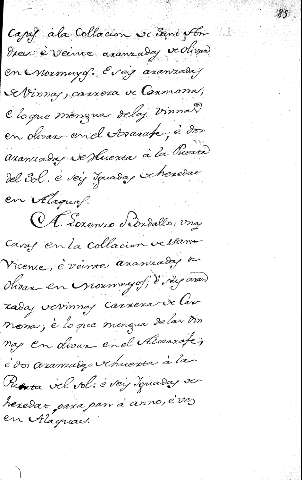 85
Casas à la Collacion de Sant An-
dres: è veinte aranzadas de olivar
en Normoyos. È seis aranzadas
de Viñas, carrera de Carmona,
è lo que mengua de las Vinnas
en olivar en el Axarafe; è dos
aranzadas de Huerta à la Puerta
del Sol. è seis Iguadas de heredat
en Alaquas.
A Lorenzo Bordallo, unas
Casas en la Collacion de Sant
Vicente, è veinte aranzadas de
olivar en Normoyos; è seis aran
zadas de vinnas Carrera de Car
mona; è lo que mengua de las vin
nas en olivar en el Axarafe;
è dos aranzadas de huerta à la
Puerta del Sol: è seis Iguadas de
heredat, para pan à anno, è vez
en Alaquas.